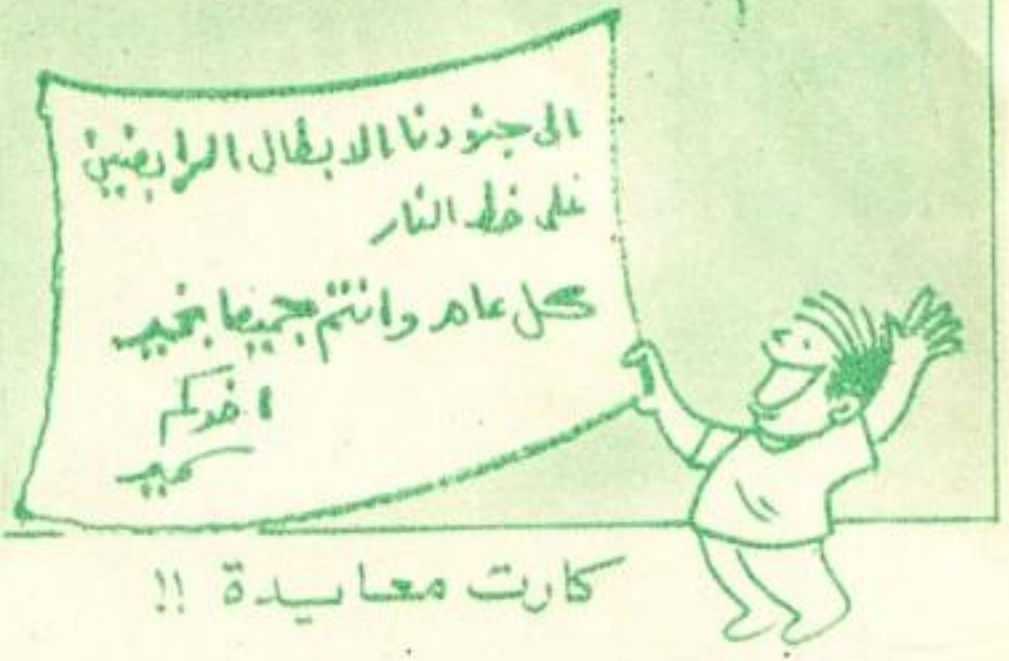 الى جنودنا الابطال المرابضين
على خط النار
كل عام وانتم جميعا بخير
اخوكم
سمير
كارت معايدة !!